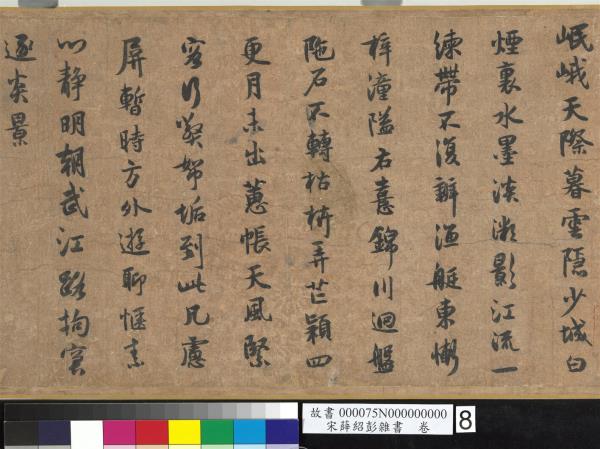 岷峨天際暮雲隱少城白
煙裏水墨淡淡影江流一
練帶不復辨漁艇東慚
梓潼隘右憙錦川迴盤
陁石不轉枯枿弄芒穎四
更月未出蕙帳天風緊
垢到此凡慮
屏暫時方外遊聊愜素
心靜明朝武江路拘窘
逐炎景
故書 000075N000000000
宋薛紹彭雜書 卷
8